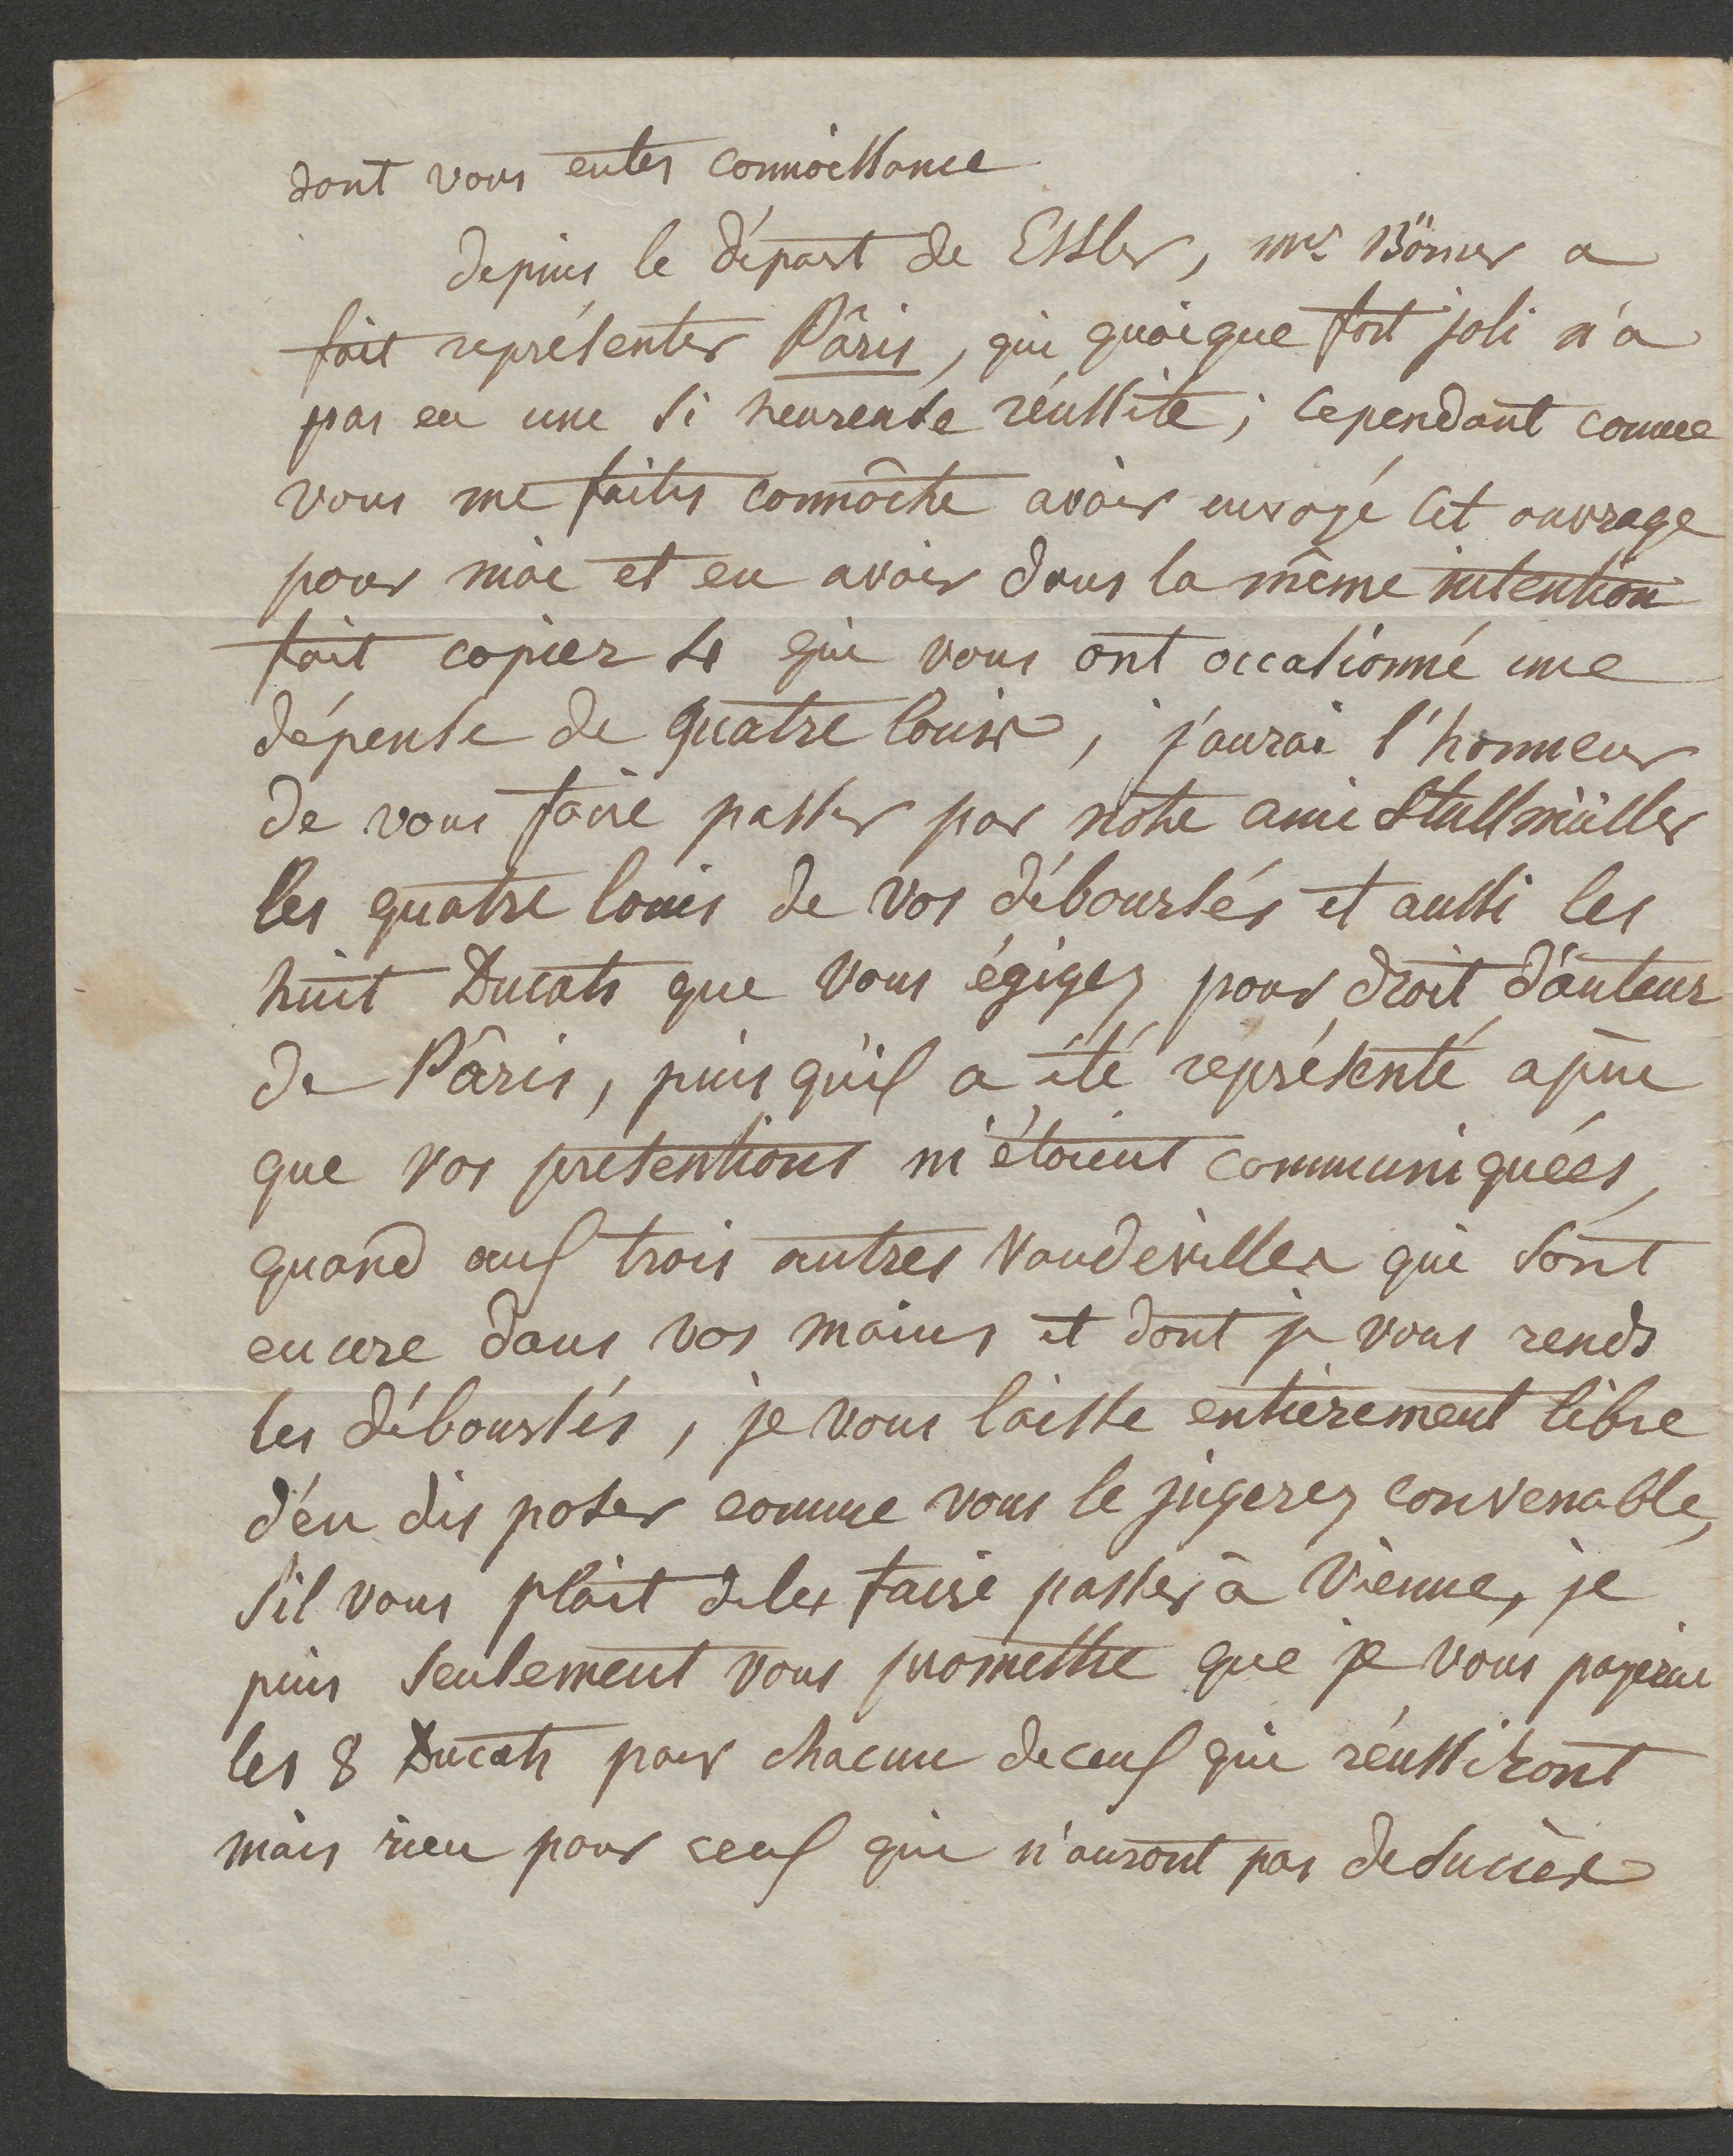 dont vous eutes connoissance
depuis le départ de Essler, mr. Börner a
fait représenter Pâris, qui quoique fort joli n'a
pas eu une si heureuse réussite; cependant comme
vous me faites connôitre avoir envoyé cet ouvrage
pour moi et en avoir dans la même intention
fait copier 4 qui vous ont occasionné une
dépense de quatre louis, j'aurai l'honneur
de vous faire passer par nôtre ami Stullmüller
les quatre louis de vos déboursés et aussi les
huit Ducats que vous égigez pour droit d'auteur
de Pâris, puis qu'il a été représenté
que vos pretentions m'étoient communiquées,
quand aux trois autres Vaudevilles qui sont
encore dans vos mains et dont je vous rends
les déboursés, je vous laisse entièrement libre
d'en dis poser comme vous le jugerez convenable,
s'il vous plait de les faire passer à Vienne, je
puis seulement vous promettre que je vous payerai
les 8 Ducats pour chacun de ceux qui réussiront
mais rien pour ceux qui n'auront pas de succès